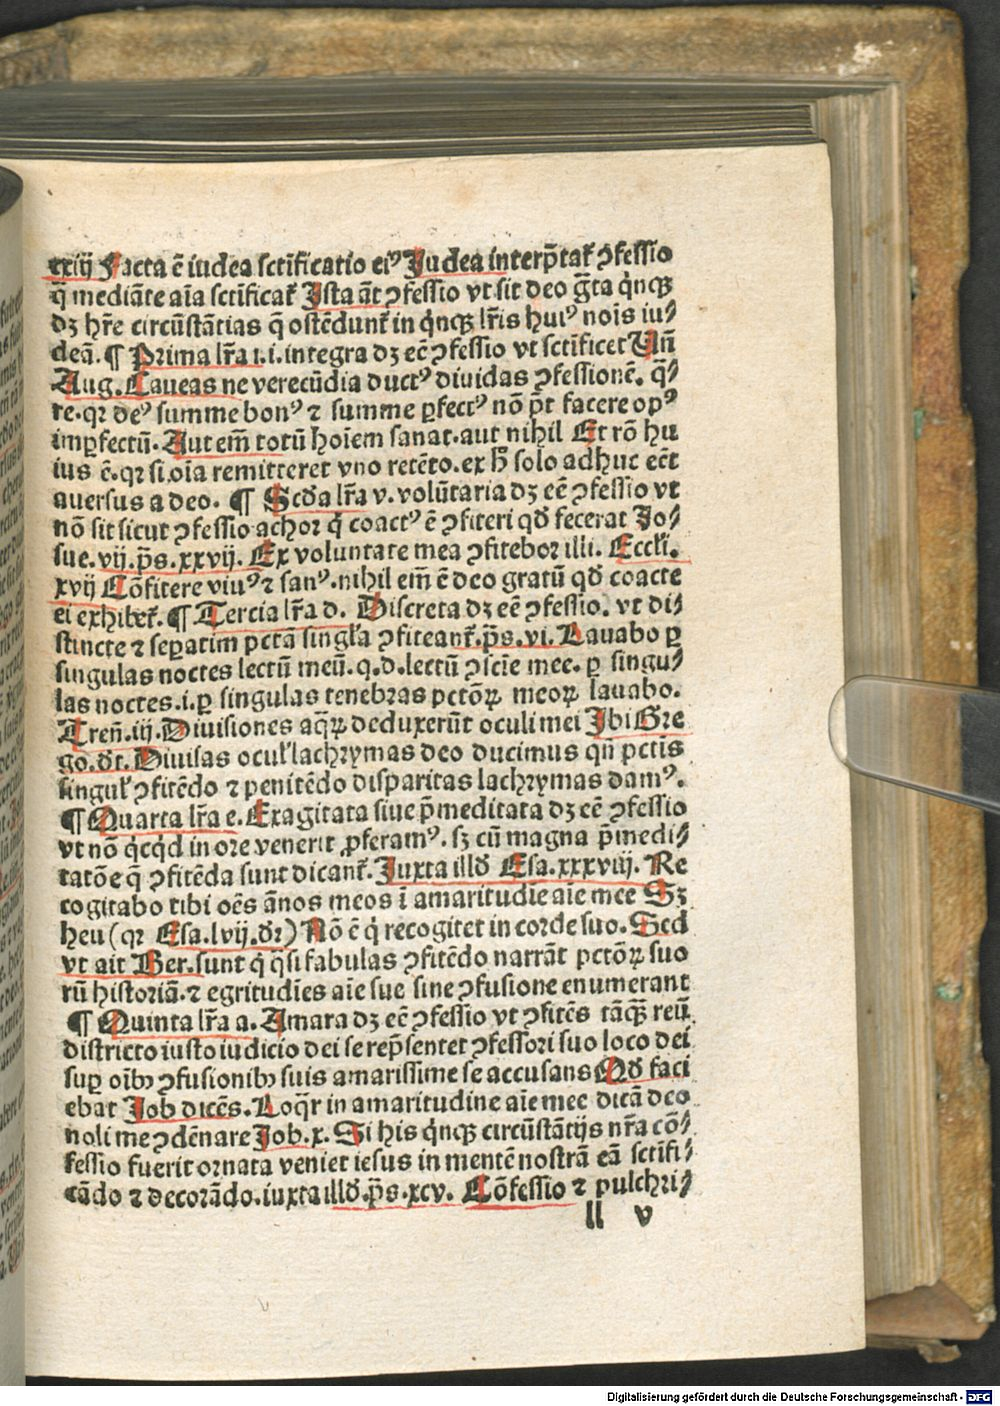 cxiij Facta ē iudea sctīficatio eiꝰ Iudea interp̄tat᷑ ꝯfessio
q̄ mediāte aīa sctīficat᷑ Ista āt ꝯfessio vt sit deo ḡta q̇nqꝫ
dꝫ hr̄e circūstātias q̄ ostēdunt᷑ in q̇nqꝫ lr̄is huiꝰ nois iu⸗
deā. ¶ Prima lr̄a i.i. integra dꝫ eē ꝯfessio vt sctīficet Uñ
Aug. Caueas ne verecūdia ductꝰ diuidas ꝯfessionē. q̄⸗
re. qꝛ deꝰ summe bonꝰ ⁊ summe ꝑfectꝰ nō p̄t facere opꝰ
imꝑfectū. Aut em̄ totū hoīem sanat. aut nihil Et rō hu
ius ē. qꝛ si oīa remitteret vno retēto. ex h̄ solo adhuc eēt
auersus a deo. ¶ Scd̄a lr̄a v. volūtaria dꝫ eē ꝯfessio vt
nō sit sicut ꝯfessio achor q̇ coactꝰ ē ꝯfiteri qd̄ fecerat Jo⸗
sue. vij. p̄s. xxvij. Ex voluntate mea ꝯfitebor illi. Eccli.
xvij Cōfitere viuꝰ ⁊ sanꝰ. nihil em̄ ē deo gratū qd̄ coacte
ei exhibet᷑. ¶ Tercia lr̄a d. Discreta dꝫ eē ꝯfessio. vt di⸗
stincte ⁊ seꝑatim pctā singl̄a ꝯfiteant᷑. p̄s. vi. Lauabo ꝑ
singulas noctes lectū meū. q. d. lectū ꝯscīe mee. ꝑ singu⸗
las noctes. i. ꝑ singulas tenebras pctōꝝ meoꝝ lauabo.
Tren̄. iij. Diuisiones aq̄ꝝ deduxerūt oculi mei Ibi Gre
go. dt̄. Diuisas ocul᷑ lachrymas deo ducimus qn̄ pctīs
singul᷑ ꝯfitēdo ⁊ penitēdo disparitas lachrymas damꝰ.
¶ Quarta lr̄a e. Exagitata siue p̄meditata dꝫ eē ꝯfessio
vt nō q̇cq̇d in ore venerit ꝓferamꝰ. sꝫ cū magna p̄medi⸗
tatōe q̄ ꝯfitēda sunt dicant᷑. Iuxta illd̄ Esa. xxxviij. Re
cogitabo tibi oēs ānos meos ī amaritudīe aīe mee Sꝫ
heu (qꝛ Esa. lvij. dꝛ̄) Nō ē q̇ recogitet in corde suo. Sed
vt ait Ber. sunt q̇ q̄si fabulas ꝯfitēdo narrāt pctōꝝ suo
rū historiā. ⁊ egritudīes aīe sue sine ꝯfusione enumerant
¶ Quinta lr̄a a. Amara dꝫ eē ꝯfessio vt ꝯfitēs tāqꝫ̄ reū
districto iusto iudicio dei se rep̄sentet ꝯfessori suo loco dei
suꝑ oībꝫ ꝯfusionibꝫ suis amarissime se accusans Qd̄ faci
ebat Job dicēs. Loq̄r in amaritudine aīe mee dicā deo
noli me ꝯdēnare Job. x. Si his q̇nqꝫ circūstātijs nr̄a cō⸗
fessio fuerit ornata veniet iesus in mentē nostrā eā sctīfi⸗
cādo ⁊ decorādo. iuxta illd̄. p̄s. xcv. Cōfessio ⁊ pulchri⸗
ll v
Digitalisierung gefördert durch die Deutsche Forschungsgemeinschaft - DFG